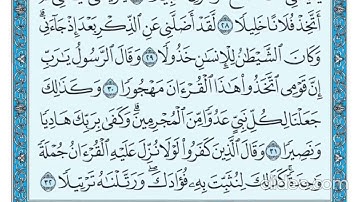 أَتَّخِذْ فُلَانًا خَلِيلًا ٢٨ لَّقَدْ أَضَلَّنِي عَنِ الذِّكْرِ بَعْدَ إِذْ جَاءَنِي ۗ
وَكَانَ الشَّيْطَٰنُ لِلْإِنسَٰنِ خَذُولًا ٢٩ وَقَالَ الرَّسُولُ يَٰرَبِّ
إِنَّ قَوْمِي اتَّخَذُوا هَٰذَا الْقُرْءَانَ مَهْجُورًا ٣٠ وَكَذَٰلِكَ
جَعَلْنَا لِكُلِّ نَبِيٍّ عَدُوًّا مِّنَ الْمُجْرِمِينَ ۗ وَكَفَىٰ بِرَبِّكَ هَادِيًا
وَنَصِيرًا ٣١ وَقَالَ الَّذِينَ كَفَرُوا لَوْلَا نُزِّلَ عَلَيْهِ الْقُرْءَانُ جُمْلَةً
وَٰحِدَةً ۚ كَذَٰلِكَ لِنُثَبِّتَ بِهِ فُؤَادَكَ ۖ وَرَتَّلْنَٰهُ تَرْتِيلًا ٣٢